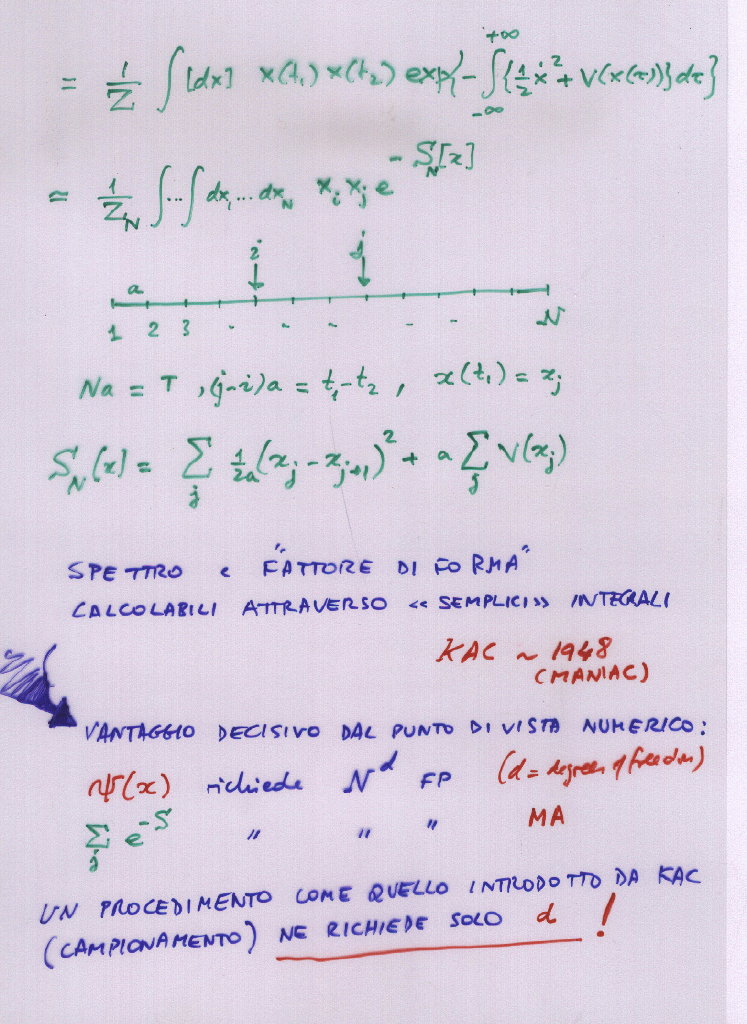 = 1/Z ∫ [dx] x(t₁) x(t₂) exp{-∫_{-∞}^{+∞} {½ẋ² + V(x(τ))}dτ}
≃ 1/Z_N ∫...∫ dx₁...dx_N x_i x_j e^{-S_N[x]}
i j
a
1 2 3 - - - - - N
Na = T , (j-i)a = t₁-t₂ , x(t₁) = x_j
S_N[x] = Σ_j 1/2a (x_j - x_{j+1})² + a Σ_j V(x_j)
SPETTRO e "FATTORE DI FORMA"
CALCOLABILI ATTRAVERSO «SEMPLICI» INTEGRALI
KAC ~ 1948
(MANIAC)
VANTAGGIO DECISIVO DAL PUNTO DI VISTA NUMERICO:
ψ(x) richiede N^d FP (d = degrees of freedom)
Σ_j e^{-S} " " " MA
UN PROCEDIMENTO COME QUELLO INTRODOTTO DA KAC
(CAMPIONAMENTO) NE RICHIEDE SOLO d !